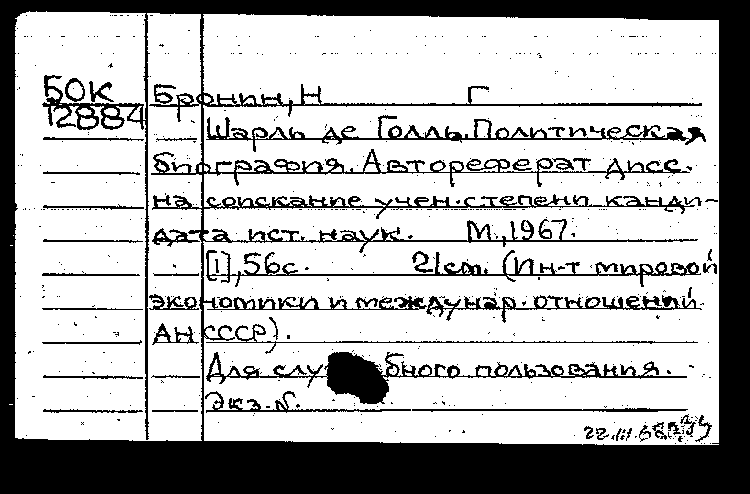 БОК Бронин, Н Г
12884
Шарль де Голль. Политическая
биография. Автореферат дисс.
на соискание учен. степени канди-
дата ист. наук. М., 1967.
[1], 56с. 21см. (Ин-т мировой
экономики и междунар. отношений
АН СССР).
Для слу бного пользования.
Экз. №.
22.III.68